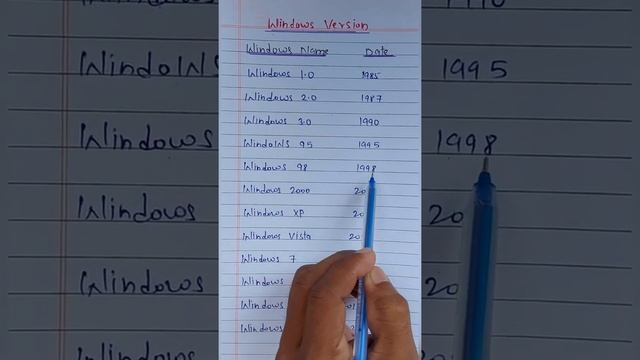 Windows Version
Windows Name Date
Windows 1.0 1985
Windows 2.0 1987
Windows 3.0 1990
WindoWS 95 1995
Windows 98 1998
Windows 2000 20
Windows XP 20
Windows Vista 20
Windows 7
Windows
Windows
Windows